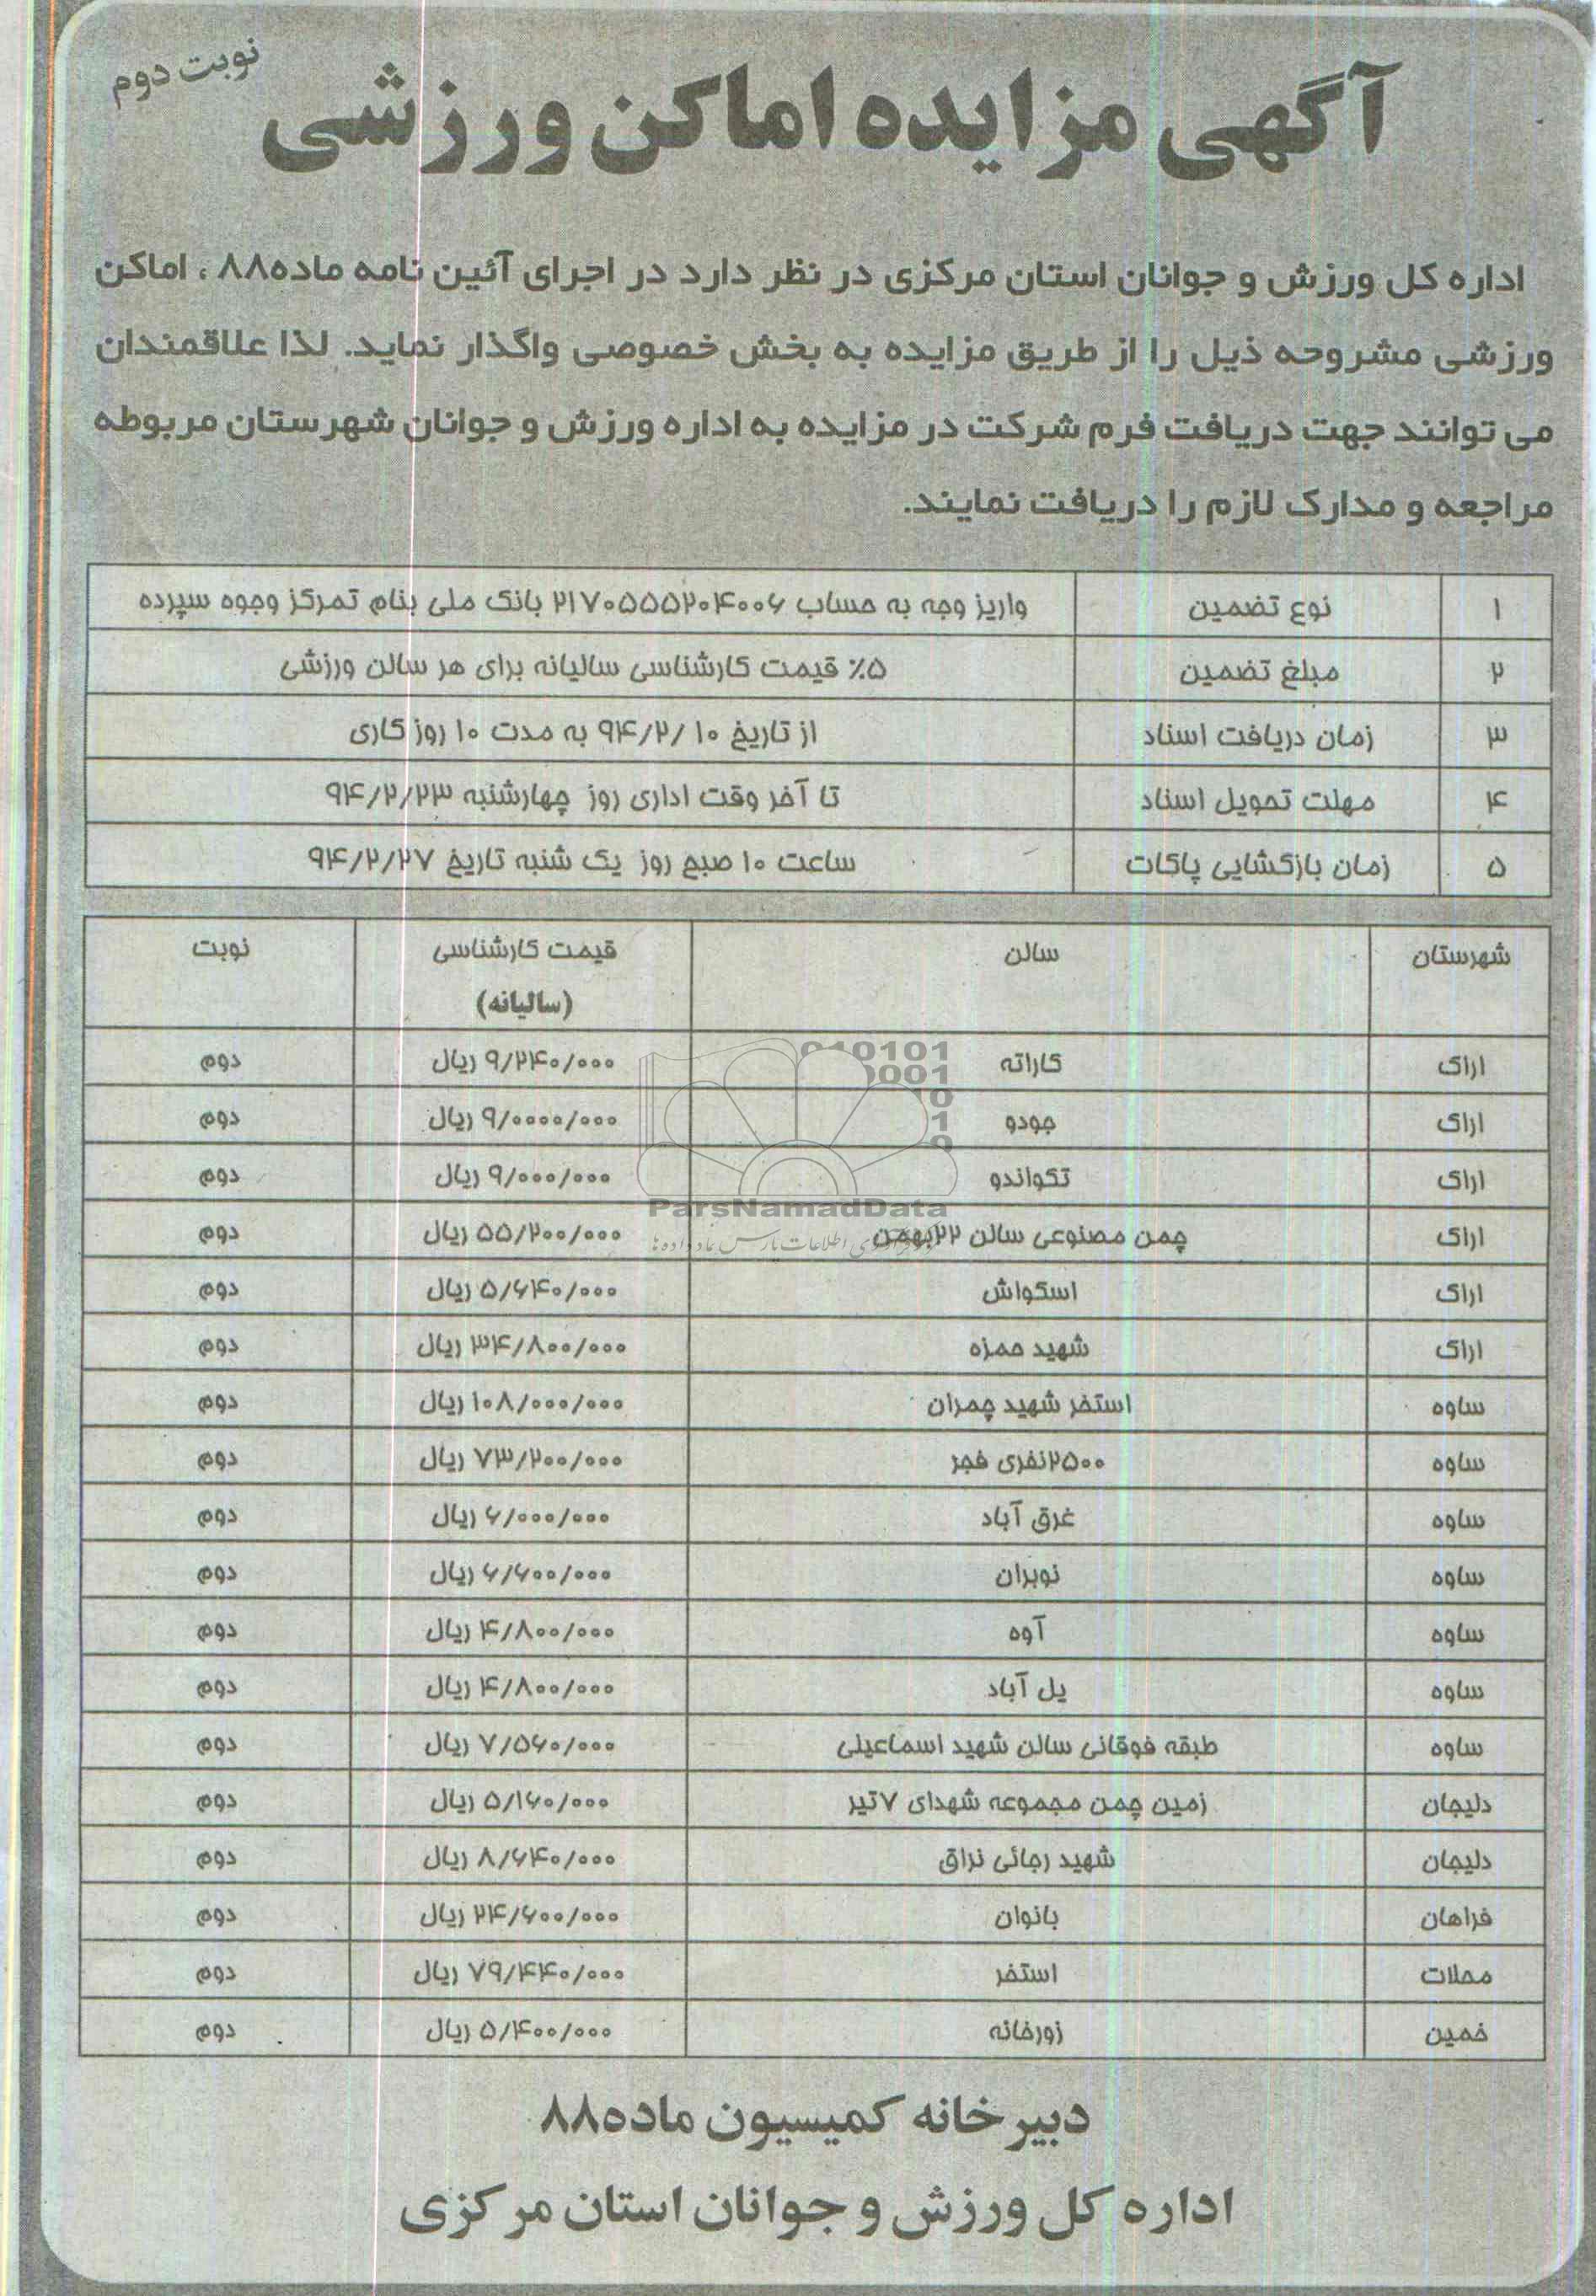 نوبت دوم
آگهی مزایده اماکن ورزشی
اداره کل ورزش و جوانان استان مرکزی در نظر دارد در اجرای آئین نامه ماده۸۸ ، اماکن
ورزشی مشروحه ذیل را از طریق مزایده به بخش خصوصی واگذار نماید. لذا علاقمندان
می توانند جهت دریافت فرم شرکت در مزایده به اداره ورزش و جوانان شهرستان مربوطه
مراجعه و مدارک لازم را دریافت نمایند.
۱ نوع تضمین واریز وجه به حساب ۲۱۷۰۵۵۵۲۰۴۰۰۶ بانک ملی بنام تمرکز وجوه سپرده
۲ مبلغ تضمین ۵٪ قیمت کارشناسی سالیانه برای هر سالن ورزشی
۳ زمان دریافت اسناد از تاریخ ۹۴/۲/۱۰ به مدت ۱۰ روز کاری
۴ مهلت تحویل اسناد تا آخر وقت اداری روز چهارشنبه ۹۴/۲/۲۳
۵ زمان بازگشایی پاکات ساعت ۱۰ صبح روز یک شنبه تاریخ ۹۴/۲/۲۷
شهرستان سالن قیمت کارشناسی نوبت
(سالیانه)
اراک کاراته ۹/۲۴۰/۰۰۰ ریال دوم
اراک جودو ۹/۰۰۰۰/۰۰۰ ریال دوم
اراک تکواندو ۹/۰۰۰/۰۰۰ ریال دوم
اراک چمن مصنوعی سالن ۲۲بهمن ۵۵/۲۰۰/۰۰۰ ریال دوم
اراک اسکواش ۵/۶۴۰/۰۰۰ ریال دوم
اراک شهید حمزه ۳۴/۸۰۰/۰۰۰ ریال دوم
ساوه استخر شهید چمران ۱۰۸/۰۰۰/۰۰۰ ریال دوم
ساوه ۲۵۰۰نفری فجر ۷۳/۲۰۰/۰۰۰ ریال دوم
ساوه غرق آباد ۶/۰۰۰/۰۰۰ ریال دوم
ساوه نوبران ۶/۶۰۰/۰۰۰ ریال دوم
ساوه آوه ۴/۸۰۰/۰۰۰ ریال دوم
ساوه یل آباد ۴/۸۰۰/۰۰۰ ریال دوم
ساوه طبقه فوقانی سالن شهید اسماعیلی ۷/۵۶۰/۰۰۰ ریال دوم
دلیجان زمین چمن مجموعه شهدای ۷تیر ۵/۱۶۰/۰۰۰ ریال دوم
دلیجان شهید رجائی نراق ۸/۶۴۰/۰۰۰ ریال دوم
فراهان بانوان ۲۴/۶۰۰/۰۰۰ ریال دوم
محلات استخر ۷۹/۴۴۰/۰۰۰ ریال دوم
خمین زورخانه ۵/۴۰۰/۰۰۰ ریال دوم
ParsNamadData
دبیرخانه کمیسیون ماده۸۸
اداره کل ورزش و جوانان استان مرکزی